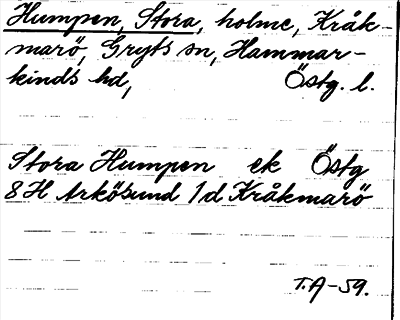 Humpen, Stora, holme, Kråk-
marö, Gryts sn, Hammar-
kinds hd, Östg. l.
Stora Humpen ek Östg
8H Arkösund 1d Kråkmarö
T.A-59.